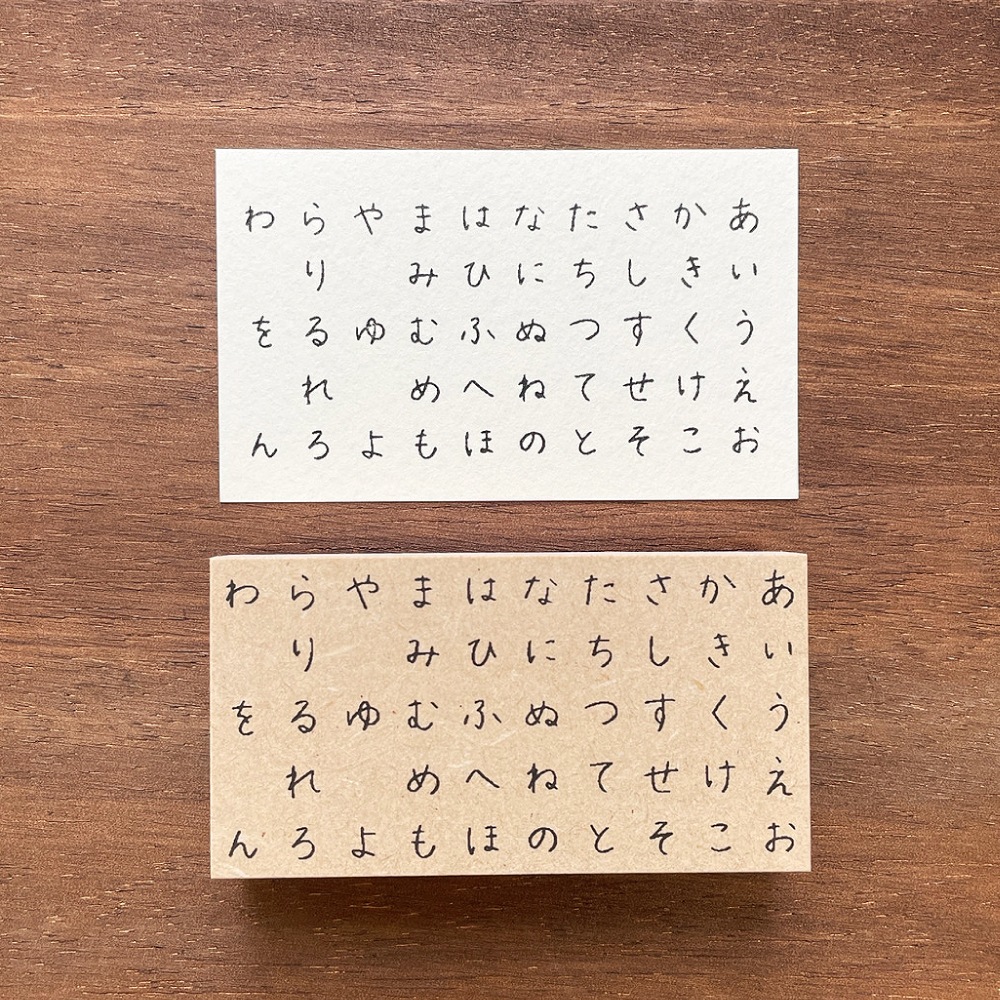 あいうえお
かきくけこ
さしすせそ
たちつてと
なにぬねの
はひふへほ
まみむめも
やゆよ
らりるれろ
わをん
あいうえお
かきくけこ
さしすせそ
たちつてと
なにぬねの
はひふへほ
まみむめも
やゆよ
らりるれろ
わをん